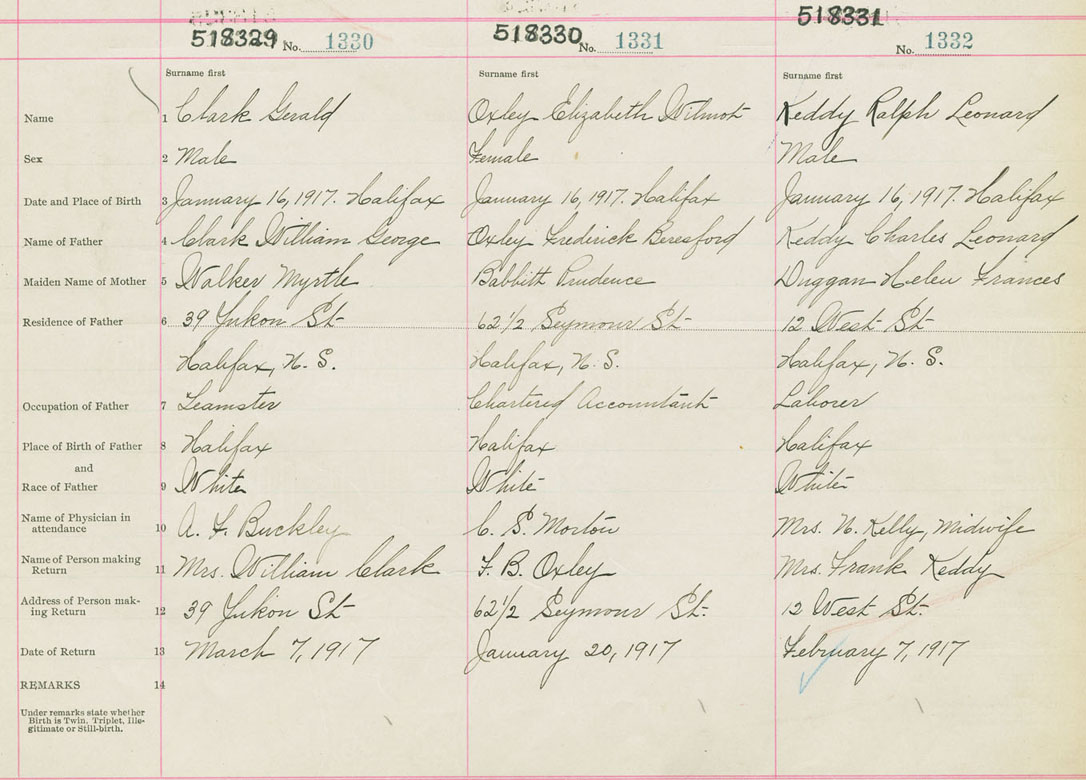 518329 No. 1330
518330 No. 1331
518331 No. 1332
Surname first Surname first Surname first
Name 1 Clark Gerald Oxley Elizabeth Wilmot Keddy Ralph Leonard
Sex 2 Male Female Male
Date and Place of Birth 3 January 16, 1917. Halifax January 16, 1917. Halifax January 16, 1917. Halifax
Name of Father 4 Clark William George Oxley Frederick Beresford Keddy Charles Leonard
Maiden Name of Mother 5 Walker Myrtle Babbitt Prudence Duggan Helen Frances
Residence of Father 6 39 Yukon St 62 1/2 Seymour St. 12 West St
Halifax, N. S. Halifax, N. S. Halifax, N. S.
Occupation of Father 7 Teamster Chartered Accountant Laborer
Place of Birth of Father 8 Halifax Halifax Halifax
and
Race of Father 9 White White White
Name of Physician in
attendance 10 A. F. Buckley C. S. Morton Mrs. N. Kelly, Midwife
Name of Person making
Return 11 Mrs. William Clark F. B. Oxley Mrs. Frank Keddy
Address of Person mak-
ing Return 12 39 Yukon St 62 1/2 Seymour St. 12 West St.
Date of Return 13 March 7, 1917 January 20, 1917 February 7, 1917
REMARKS 14
Under remarks state whether
Birth is Twin, Triplet, Ille-
gitimate or Still-birth.